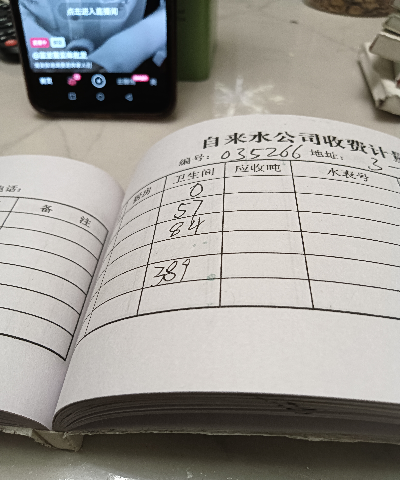 点击进入直播间
自来水公司收费计
编号: 035266 地址: 3
电话:
备 注
厨房 卫生间 应收吨 水表号
0
57
84
389